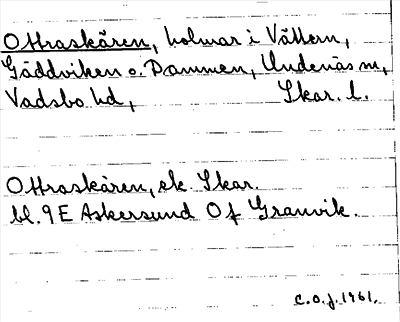 Ottraskären, holmar i Vättern,
Gäddviken o. Dammen, Undenäs sn,
Vadsbo hd, Skar. l.
Ottraskären, ek. Skar.
bl. 9E Askersund 0f Granvik.
C.O.J. 1961.